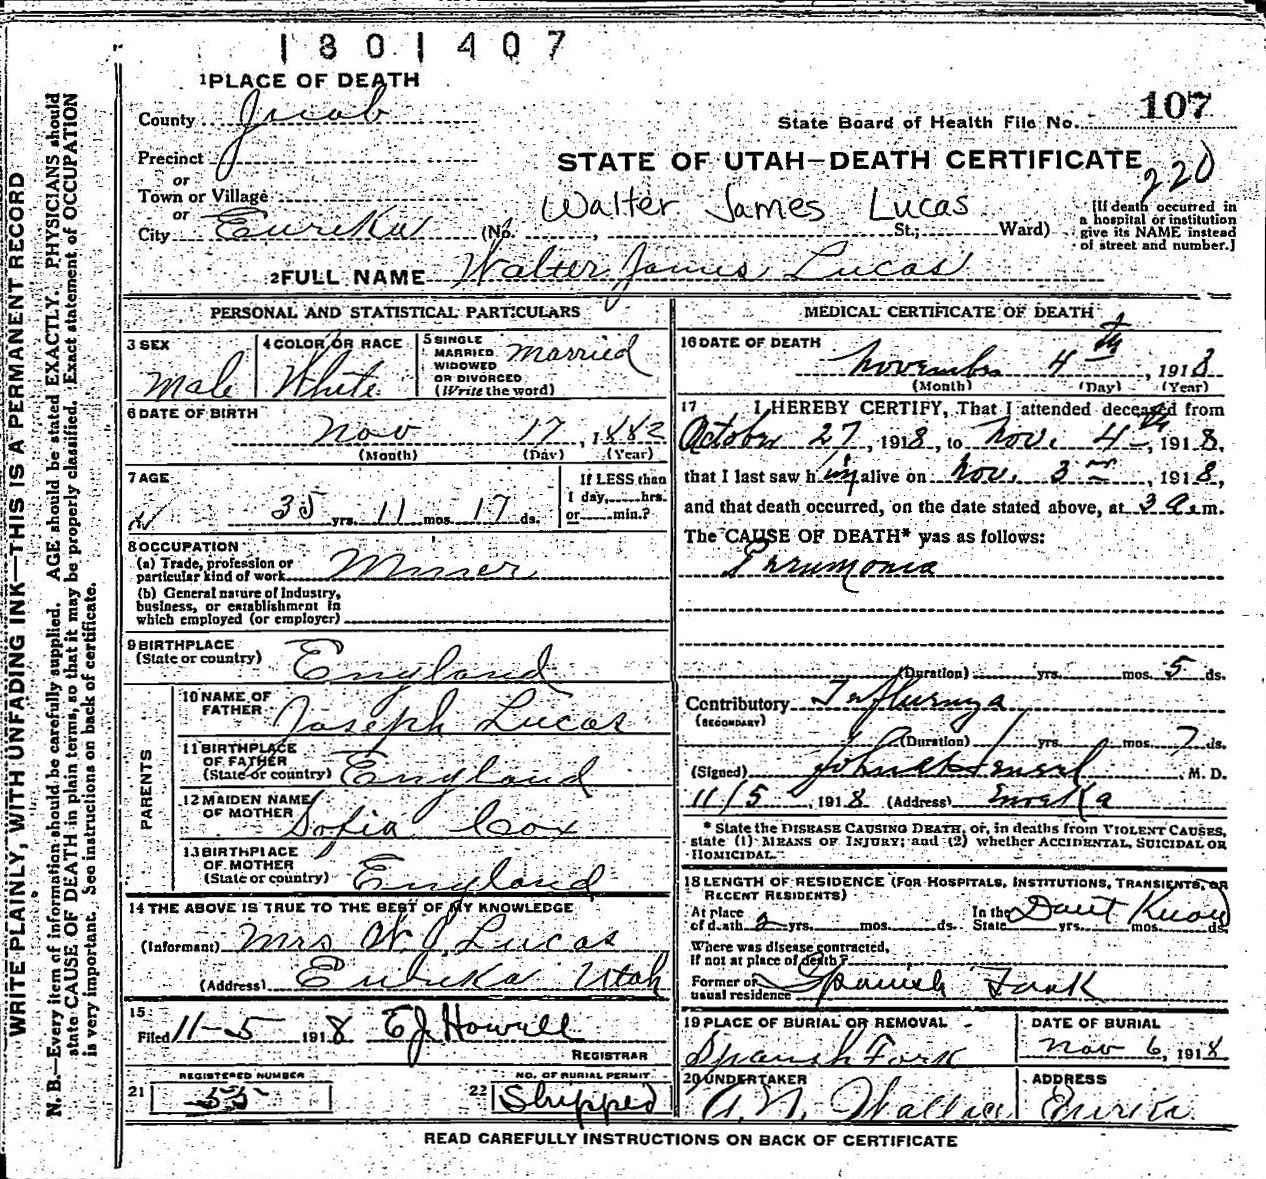 1801407
1 PLACE OF DEATH
County Juab
State Board of Health File No. 107
Precinct
STATE OF UTAH—DEATH CERTIFICATE
220
or
Town or Village
or
Walter James Lucas
City Eureka (No. , St.; Ward)
[If death occurred in
a hospital or institution
give its NAME instead
of street and number.]
2 FULL NAME Walter James Lucas
PERSONAL AND STATISTICAL PARTICULARS
3 SEX
Male
4 COLOR OR RACE
White
5 SINGLE
MARRIED
WIDOWED
OR DIVORCED
(Write the word)
Married
6 DATE OF BIRTH
Nov 17, 1882
(Month) (Day) (Year)
7 AGE
35 yrs. 11 mos. 17 ds.
If LESS than
1 day, hrs.
or min.?
8 OCCUPATION
(a) Trade, profession or
particular kind of work Miner
(b) General nature of Industry,
business, or establishment in
which employed (or employer)
9 BIRTHPLACE
(State or country) England
PARENTS
10 NAME OF
FATHER Joseph Lucas
11 BIRTHPLACE
OF FATHER
(State or country) England
12 MAIDEN NAME
OF MOTHER Sofia Cox
13 BIRTHPLACE
OF MOTHER
(State or country) England
14 THE ABOVE IS TRUE TO THE BEST OF MY KNOWLEDGE
(Informant) Mrs W. J. Lucas
(Address) Eureka Utah
15
Filed 11-5 1918 E J Howell
REGISTRAR
REGISTERED NUMBER
21 55
NO. OF BURIAL PERMIT
22 Shipped
MEDICAL CERTIFICATE OF DEATH
16 DATE OF DEATH
November 4th, 1918
(Month) (Day) (Year)
17 I HEREBY CERTIFY, That I attended deceased from
October 27, 1918, to Nov. 4th, 1918,
that I last saw him alive on Nov. 3rd, 1918,
and that death occurred, on the date stated above, at 3 a.m.
The CAUSE OF DEATH* was as follows:
Pneumonia
(Duration) yrs. mos. 5 ds.
Contributory Influenza
(SECONDARY)
(Duration) yrs. mos. 7 ds.
(Signed) M. D.
11/5, 1918 (Address) Eureka
* State the DISEASE CAUSING DEATH, or, in deaths from VIOLENT CAUSES,
state (1) MEANS OF INJURY; and (2) whether ACCIDENTAL, SUICIDAL OR
HOMICIDAL.
18 LENGTH OF RESIDENCE (FOR HOSPITALS, INSTITUTIONS, TRANSIENTS, OR
RECENT RESIDENTS)
At place
of death 2 yrs. mos. ds.
In the
State yrs. mos. ds. Don't Know
Where was disease contracted,
If not at place of death?
Former or
usual residence Spanish Fork
19 PLACE OF BURIAL OR REMOVAL
Spanish Fork
DATE OF BURIAL
Nov 6, 1918
20 UNDERTAKER
A. N. Wallace
ADDRESS
Eureka
READ CAREFULLY INSTRUCTIONS ON BACK OF CERTIFICATE
WRITE PLAINLY, WITH UNFADING INK—THIS IS A PERMANENT RECORD
N. B.—Every item of information should be carefully supplied. AGE should be stated EXACTLY. PHYSICIANS should
state CAUSE OF DEATH in plain terms, so that it may be properly classified. Exact statement of OCCUPATION
is very important. See instructions on back of certificate.